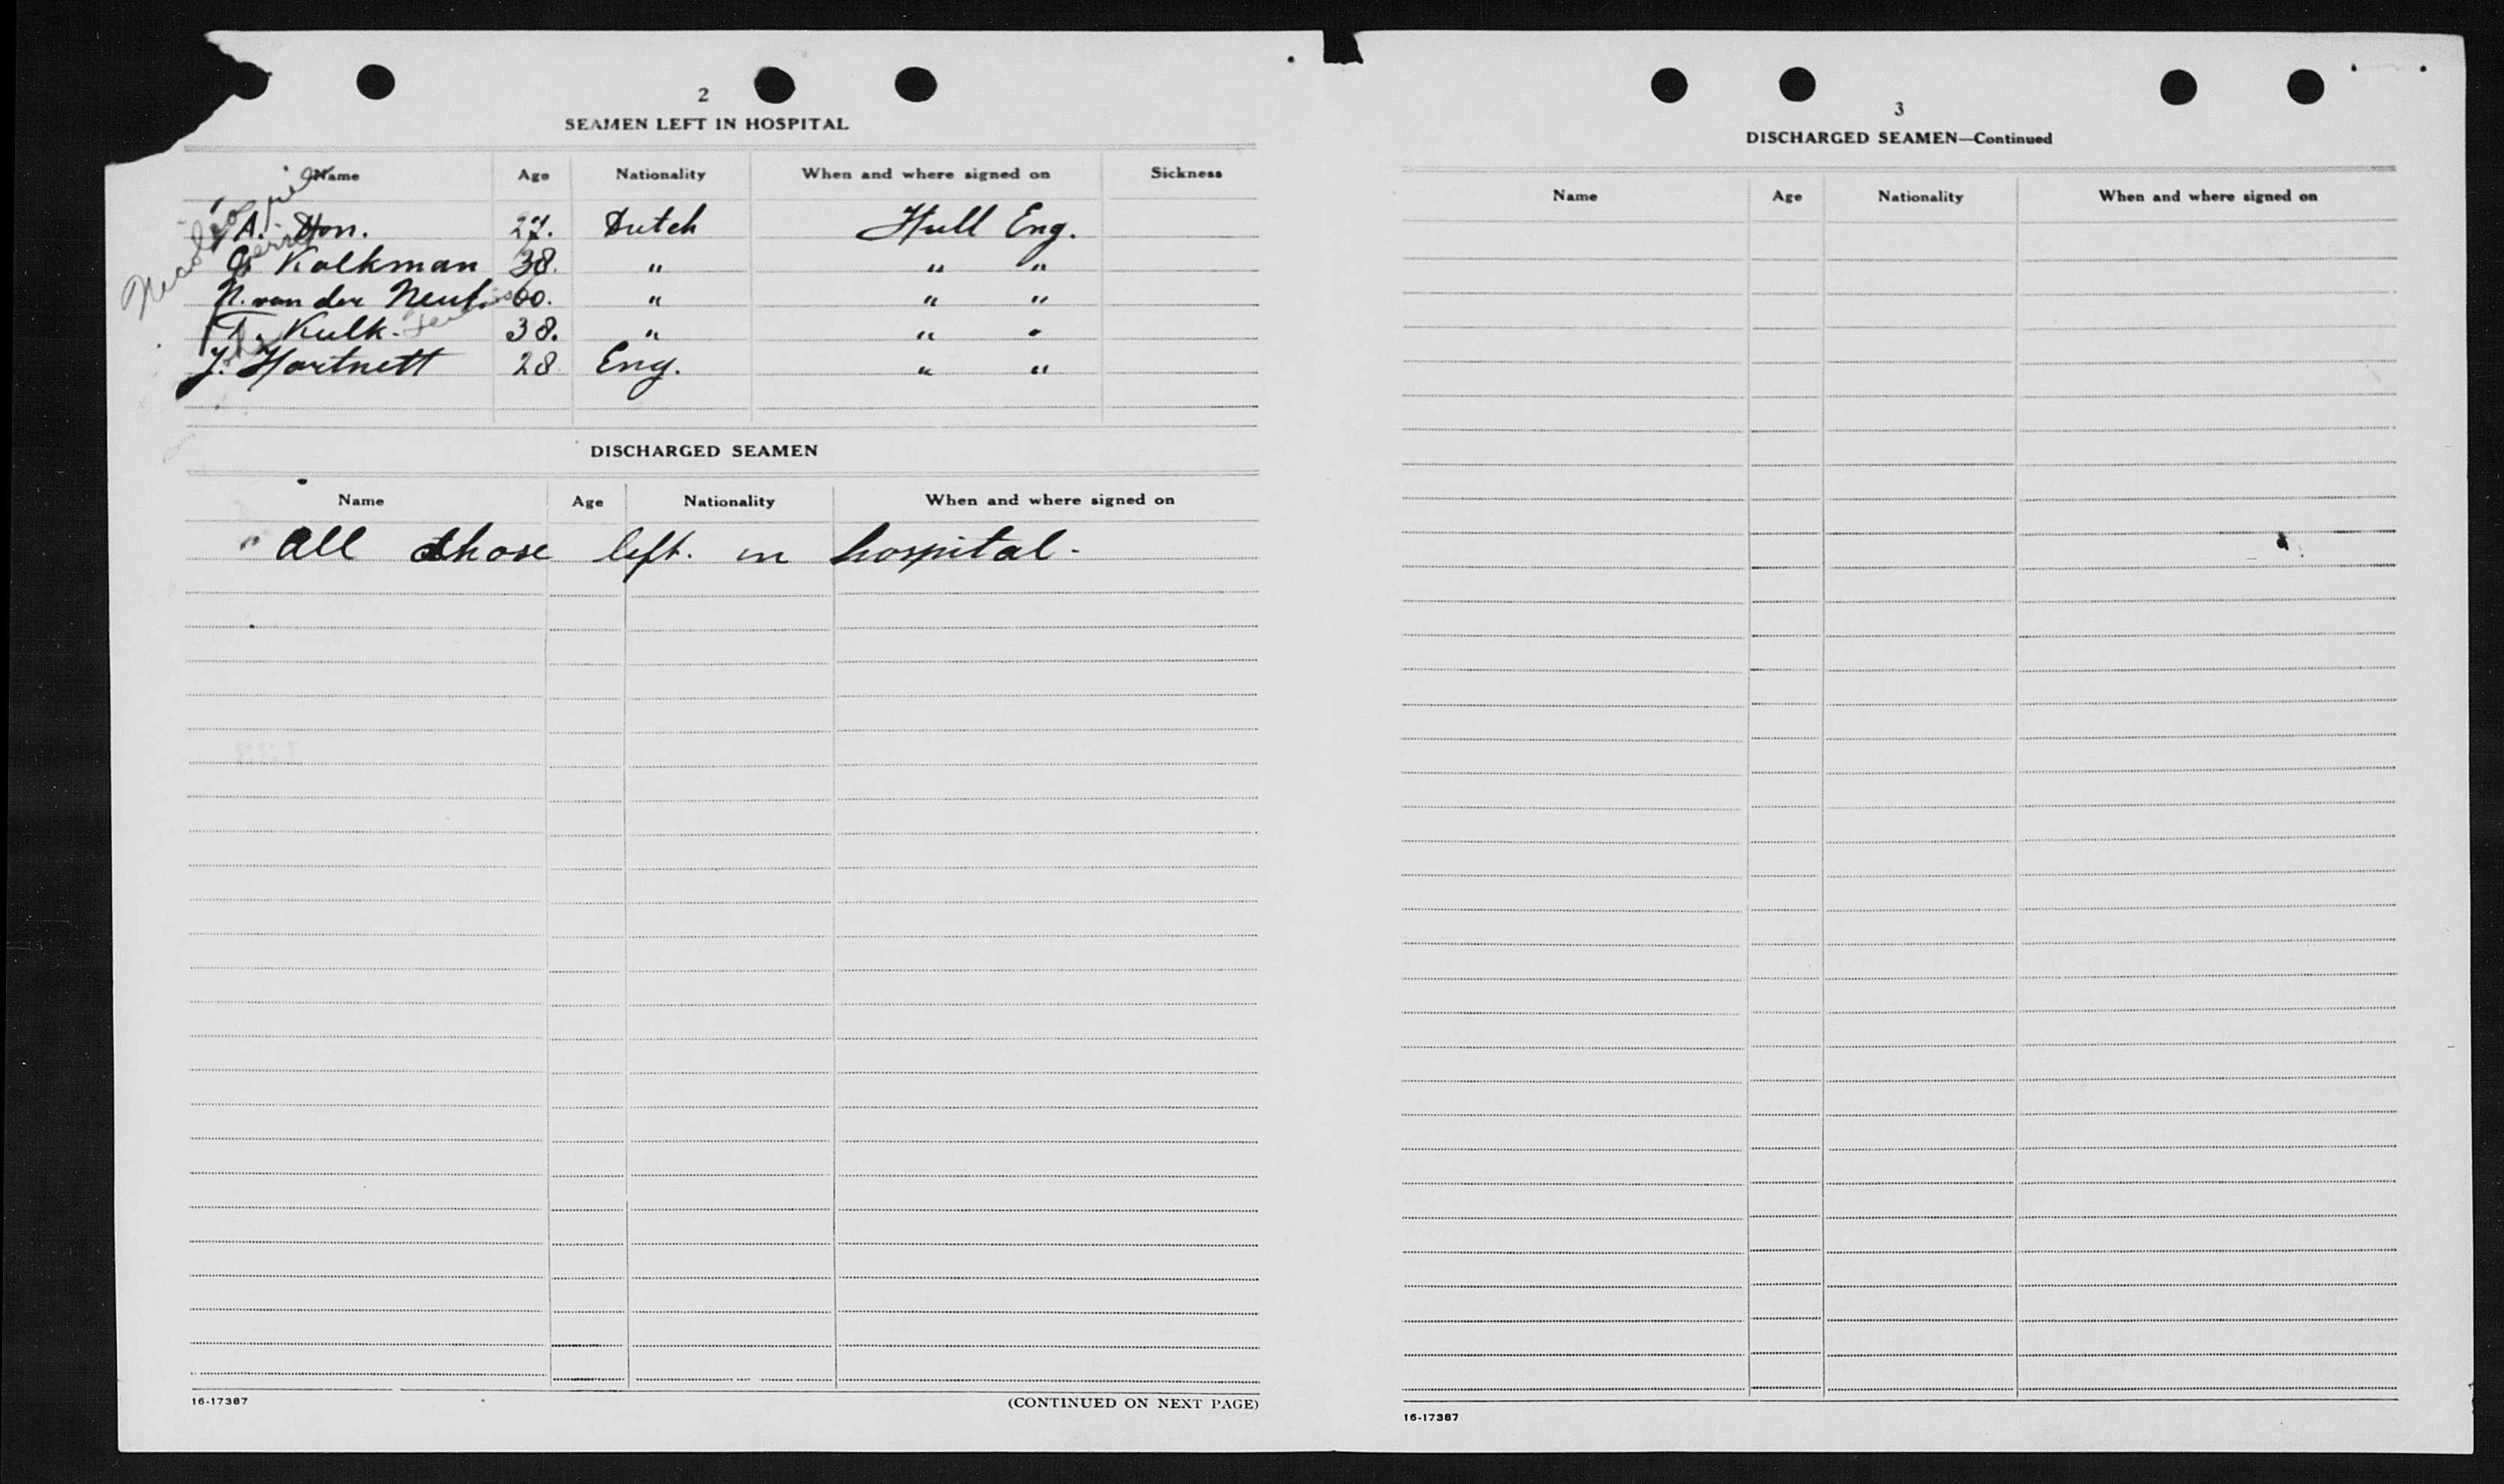 2
SEAMEN LEFT IN HOSPITAL
Name Age Nationality When and where signed on Sickness
A. Don. 27. Dutch Hull Eng.
G. Kolkman 38. " " "
N. van der Neut. 60. " " "
T. Kulk. 38. " " "
J. Hartnett 28 Eng. " "
DISCHARGED SEAMEN
Name Age Nationality When and where signed on
All those left in hospital.
16-17387
(CONTINUED ON NEXT PAGE)
3
DISCHARGED SEAMEN—Continued
Name Age Nationality When and where signed on
16-17387